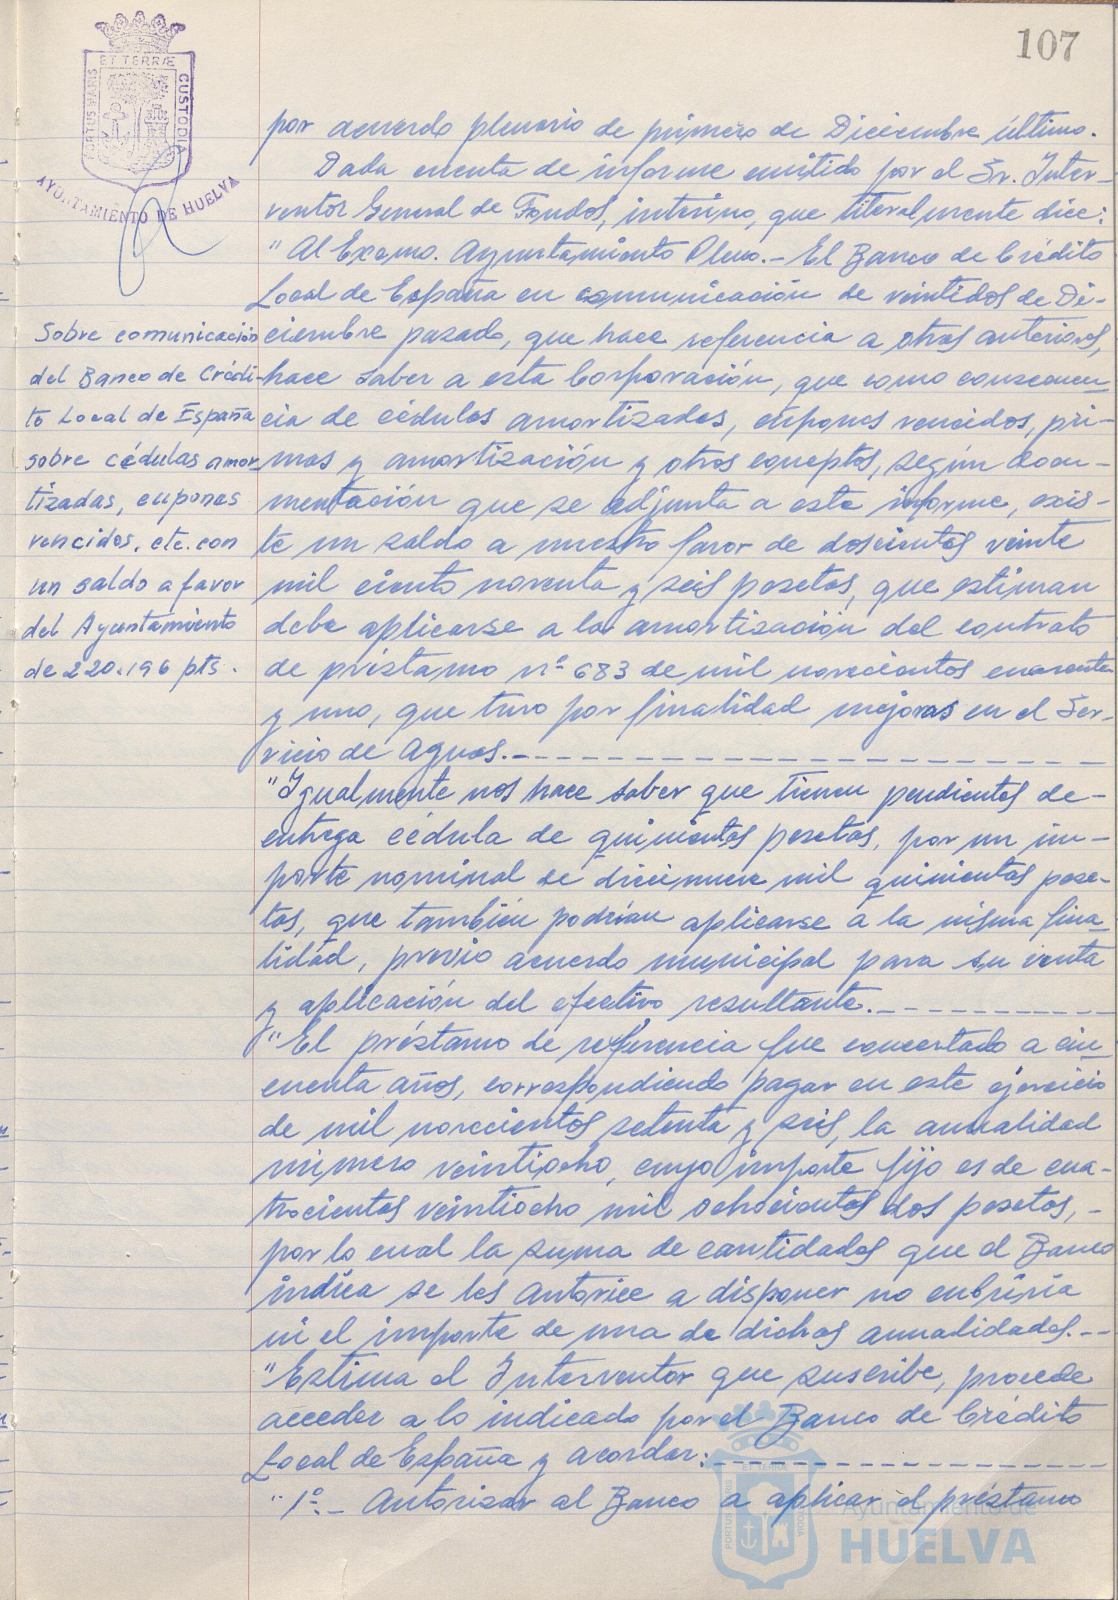 107
ET TERRÆ
PORTUS MARIS
CUSTODIA
AYUNTAMIENTO DE HUELVA
Sobre comunicación
del Banco de Crédi-
to Local de España
sobre cédulas amor
tizadas, cupones
vencidos, etc. con
un saldo a favor
del Ayuntamiento
de 220.196 pts.
por acuerdo plenario de primero de Diciembre último.
Dada cuenta de informe emitido por el Sr. Inter-
ventor General de Fondos, interino, que literalmente dice:
"Al Excmo. Ayuntamiento Pleno.- El Banco de Crédito
Local de España en comunicación de veintidos de Di-
ciembre pasado, que hace referencia a otras anteriores,
hace saber a esta Corporación, que como consecuen-
cia de cédulas amortizadas, cupones vencidos, pri-
mas y amortización y otros conceptos, según docu-
mentación que se adjunta a este informe, exis-
te un saldo a nuestro favor de doscientas veinte
mil ciento noventa y seis pesetas, que estiman
debe aplicarse a la amortización del contrato
de préstamo nº 683 de mil novecientos cuarenta
y uno, que tuvo por finalidad mejoras en el Ser-
vicio de Aguas.-
"Igualmente nos hace saber que tienen pendientes de-
entrega cédula de quinientas pesetas, por un im-
porte nominal de diecinueve mil quinientas pese-
tas, que también podrían aplicarse a la misma fina-
lidad, previo acuerdo municipal para su venta
y aplicación del efectivo resultante.-
"El préstamo de referencia fue concertado a cin-
cuenta años, correspondiendo pagar en este ejercicio
de mil novecientos setenta y seis, la anualidad
número veintiocho, cuyo importe fijo es de cua-
trocientas veintiocho mil ochocientas dos pesetas,-
por lo cual la suma de cantidades que el Banco
indica se les autorice a disponer no cubriría
ni el importe de una de dichas anualidades.--
"Estima el Interventor que suscribe, procede
acceder a lo indicado por el Banco de Crédito
Local de España y acordar:-
"1º.- Autorizar al Banco a aplicar el préstamo
Ayuntamiento de
HUELVA